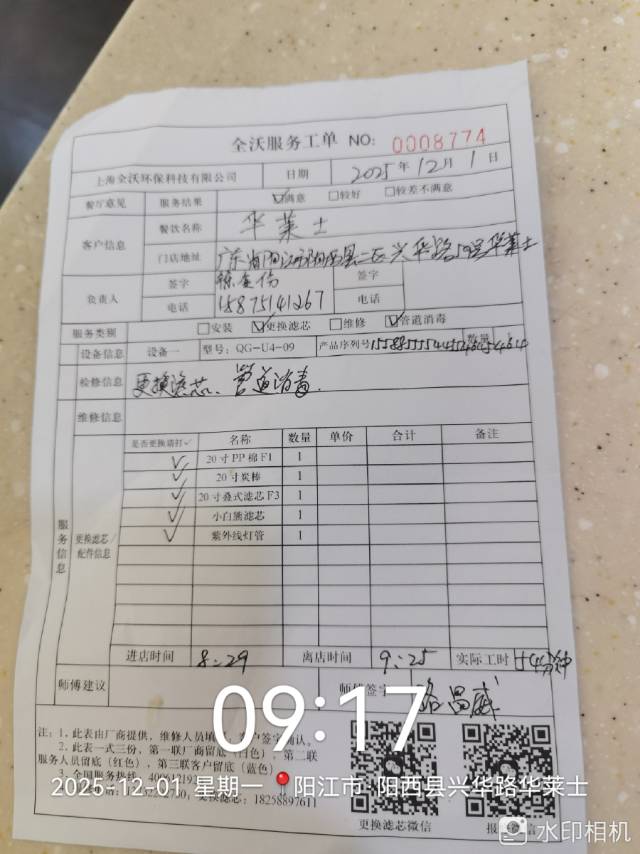 全沃服务工单 NO: 0008774
上海全沃环保科技有限公司 日期 2025年12月1日
餐厅意见 服务结果 ☑满意 □较好 □较差不满意
客户信息 餐饮名称 华莱士
门店地址 广东省阳江市阳西县二区兴华路 华莱士
负责人 签字 签字
电话 15875141267 电话
服务类别 □安装 ☑更换滤芯 □维修 ☑管道消毒
设备信息 设备一 型号: QG-U4-09 产品序列号 数量
检修信息 更换滤芯、管道消毒.
维修信息
服务信息 更换滤芯/配件信息 是否更换请打✓ 名称 数量 单价 合计 备注
✓ 20寸PP棉F1 1
✓ 20寸炭棒 1
✓ 20寸叠式滤芯F3 1
✓ 小白熊滤芯 1
✓ 紫外线灯管 1
进店时间 8:29 离店时间 9:25 实际工时 54分钟
师傅建议 师傅签字 路昌威
09:17
注: 1、此表由厂商提供, 维修人员填写, 客户签字确认。
2、此表一式三份, 第一联厂商留底(白色), 第二联
服务人员留底(红色), 第三联客户留底(蓝色)
3、全国服务热线:
2025-12-01 星期一 阳江市·阳西县兴华路华莱士
更换滤芯: 18258897611
更换滤芯微信
水印相机